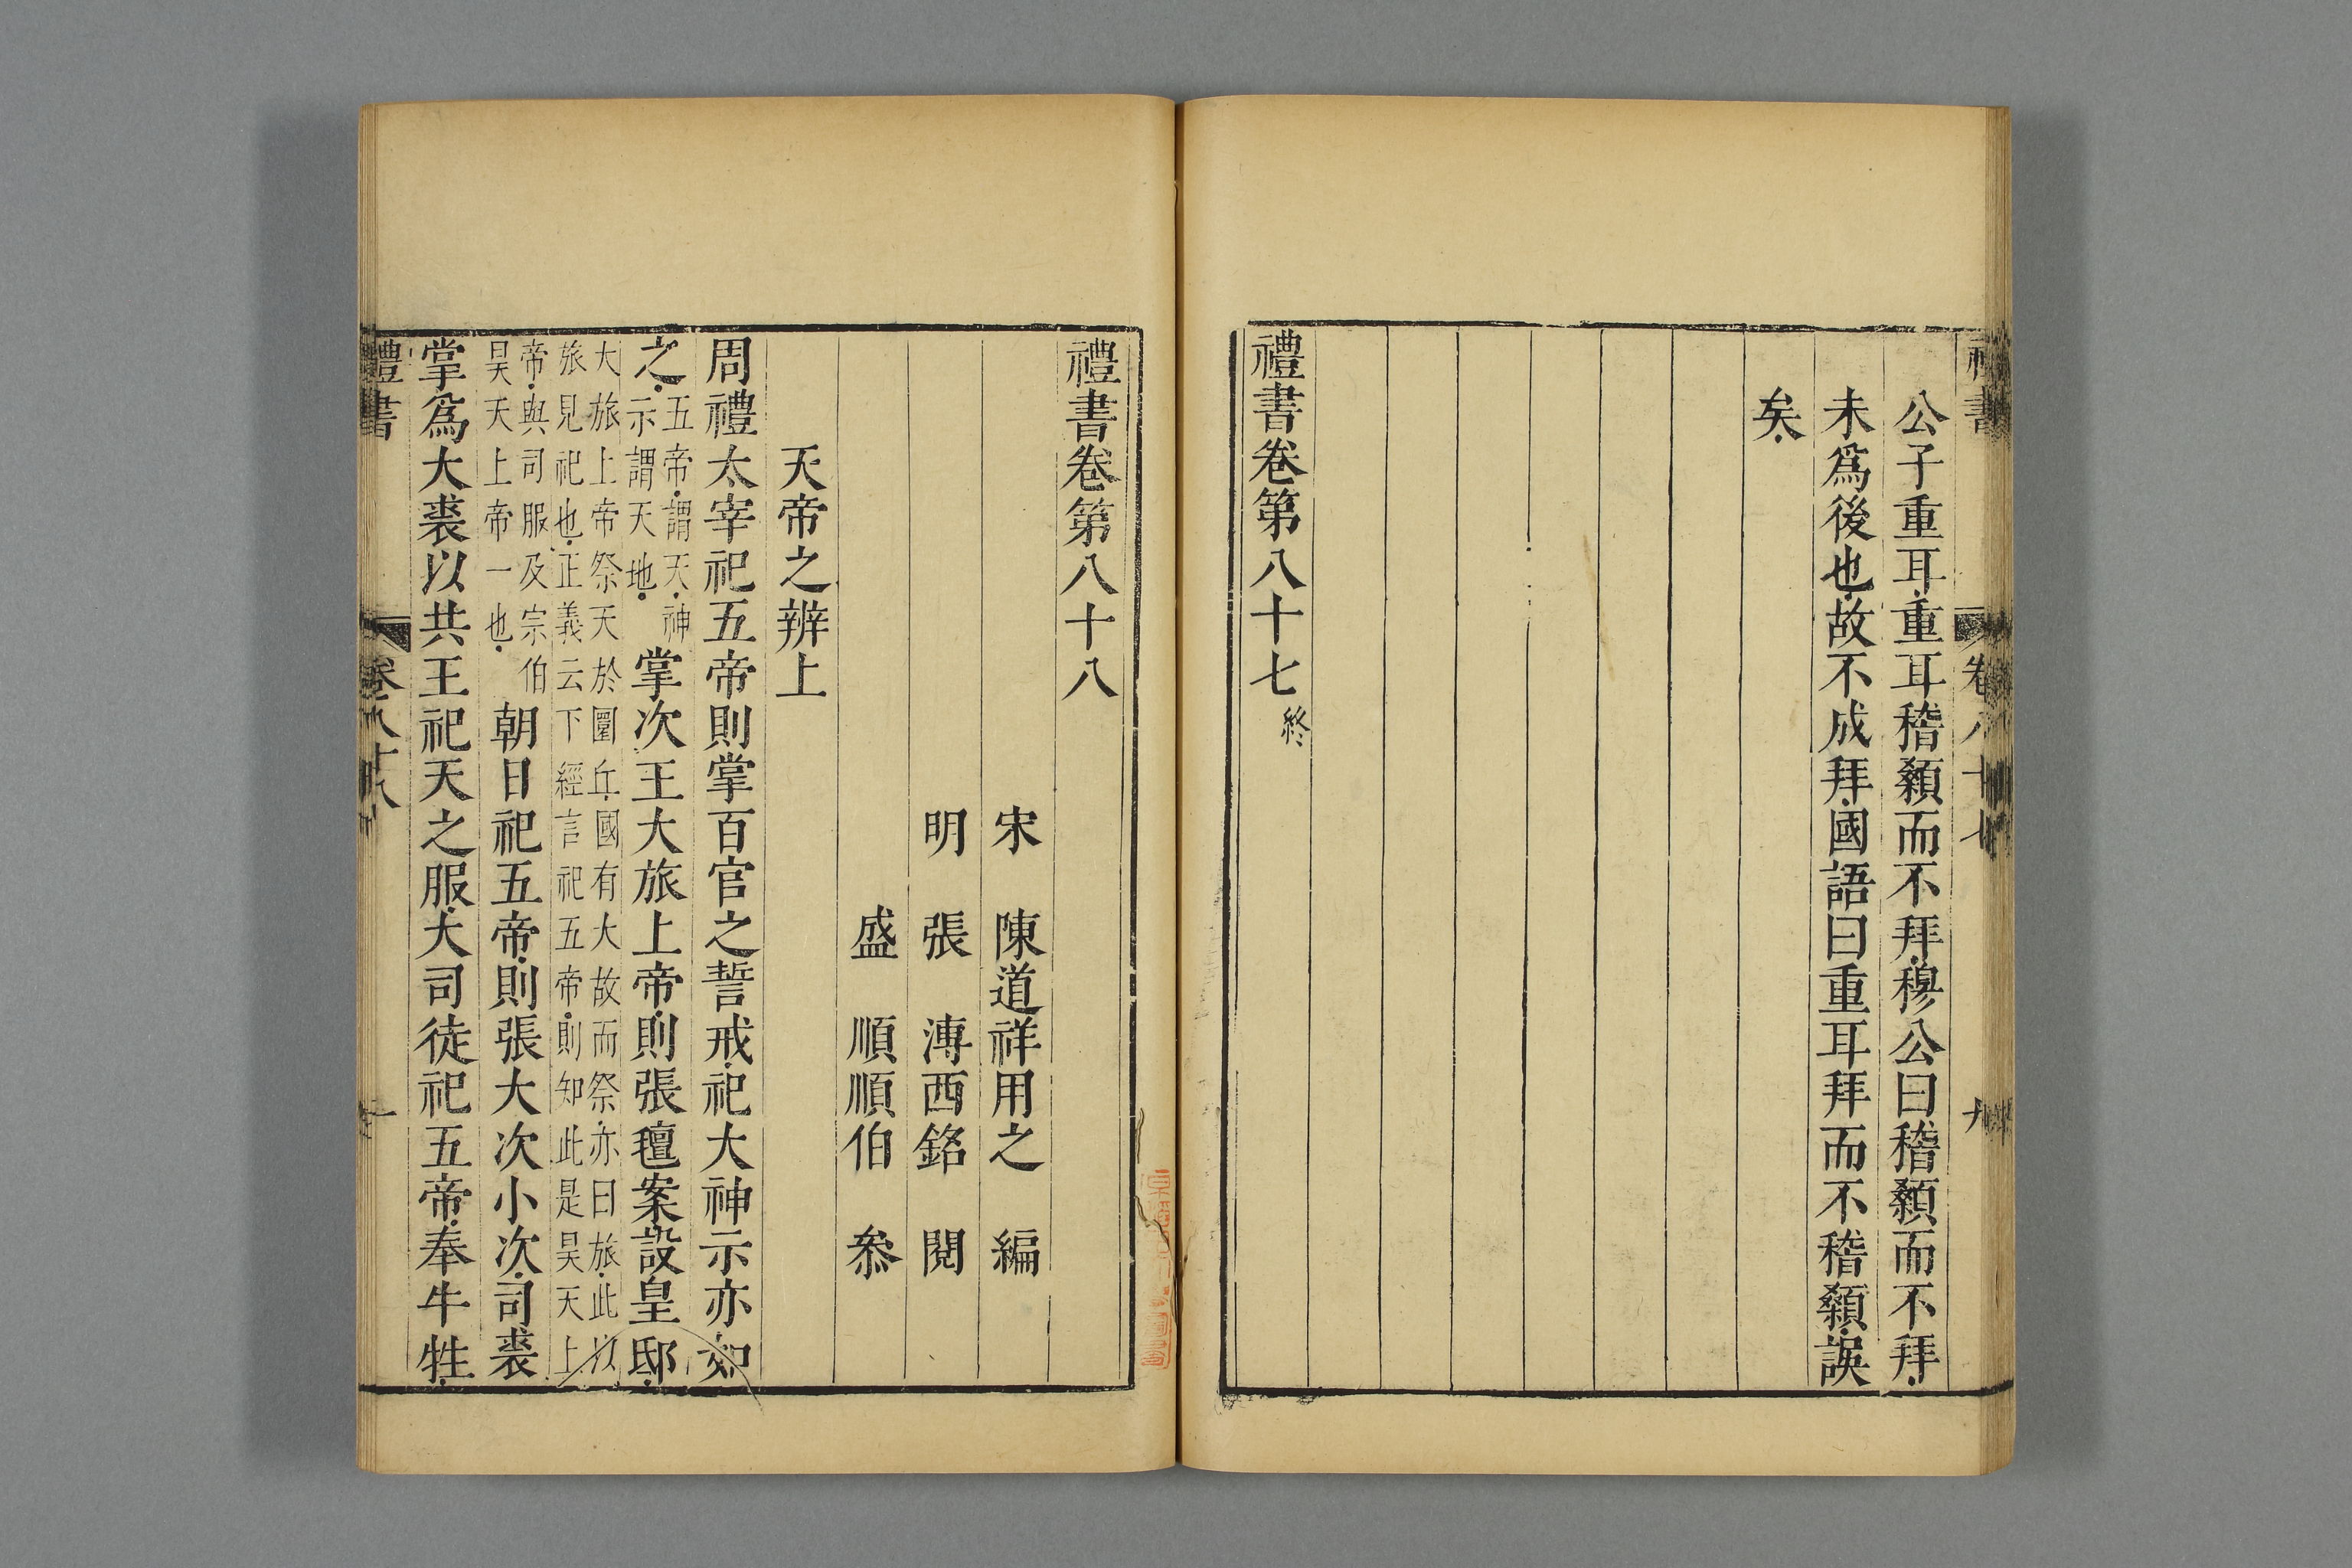 公子重耳重耳稽顙而不拜穆公曰稽顙而不拜
未爲後也故不成拜國語曰重耳拜而不稽顙誤
矣
禮書卷第八十七終
禮書卷第八十八
宋 陳道祥用之 編
明 張溥西銘 閱
盛 順順伯 叅
天帝之辨上
周禮太宰祀五帝則掌百官之誓戒祀大神示亦如
之五帝謂天神示謂天地掌次王大旅上帝則張氊案設皇邸
大旅上帝祭天於圜丘國有大故而祭亦曰旅此以
旅見祀也正義云下經言祀五帝則知此是昊天上
帝與司服及宗伯
昊天上帝一也
朝日祀五帝則張大次小次司裘
掌爲大裘以共王祀天之服大司徒祀五帝奉牛牲
禮書 卷八十八 一